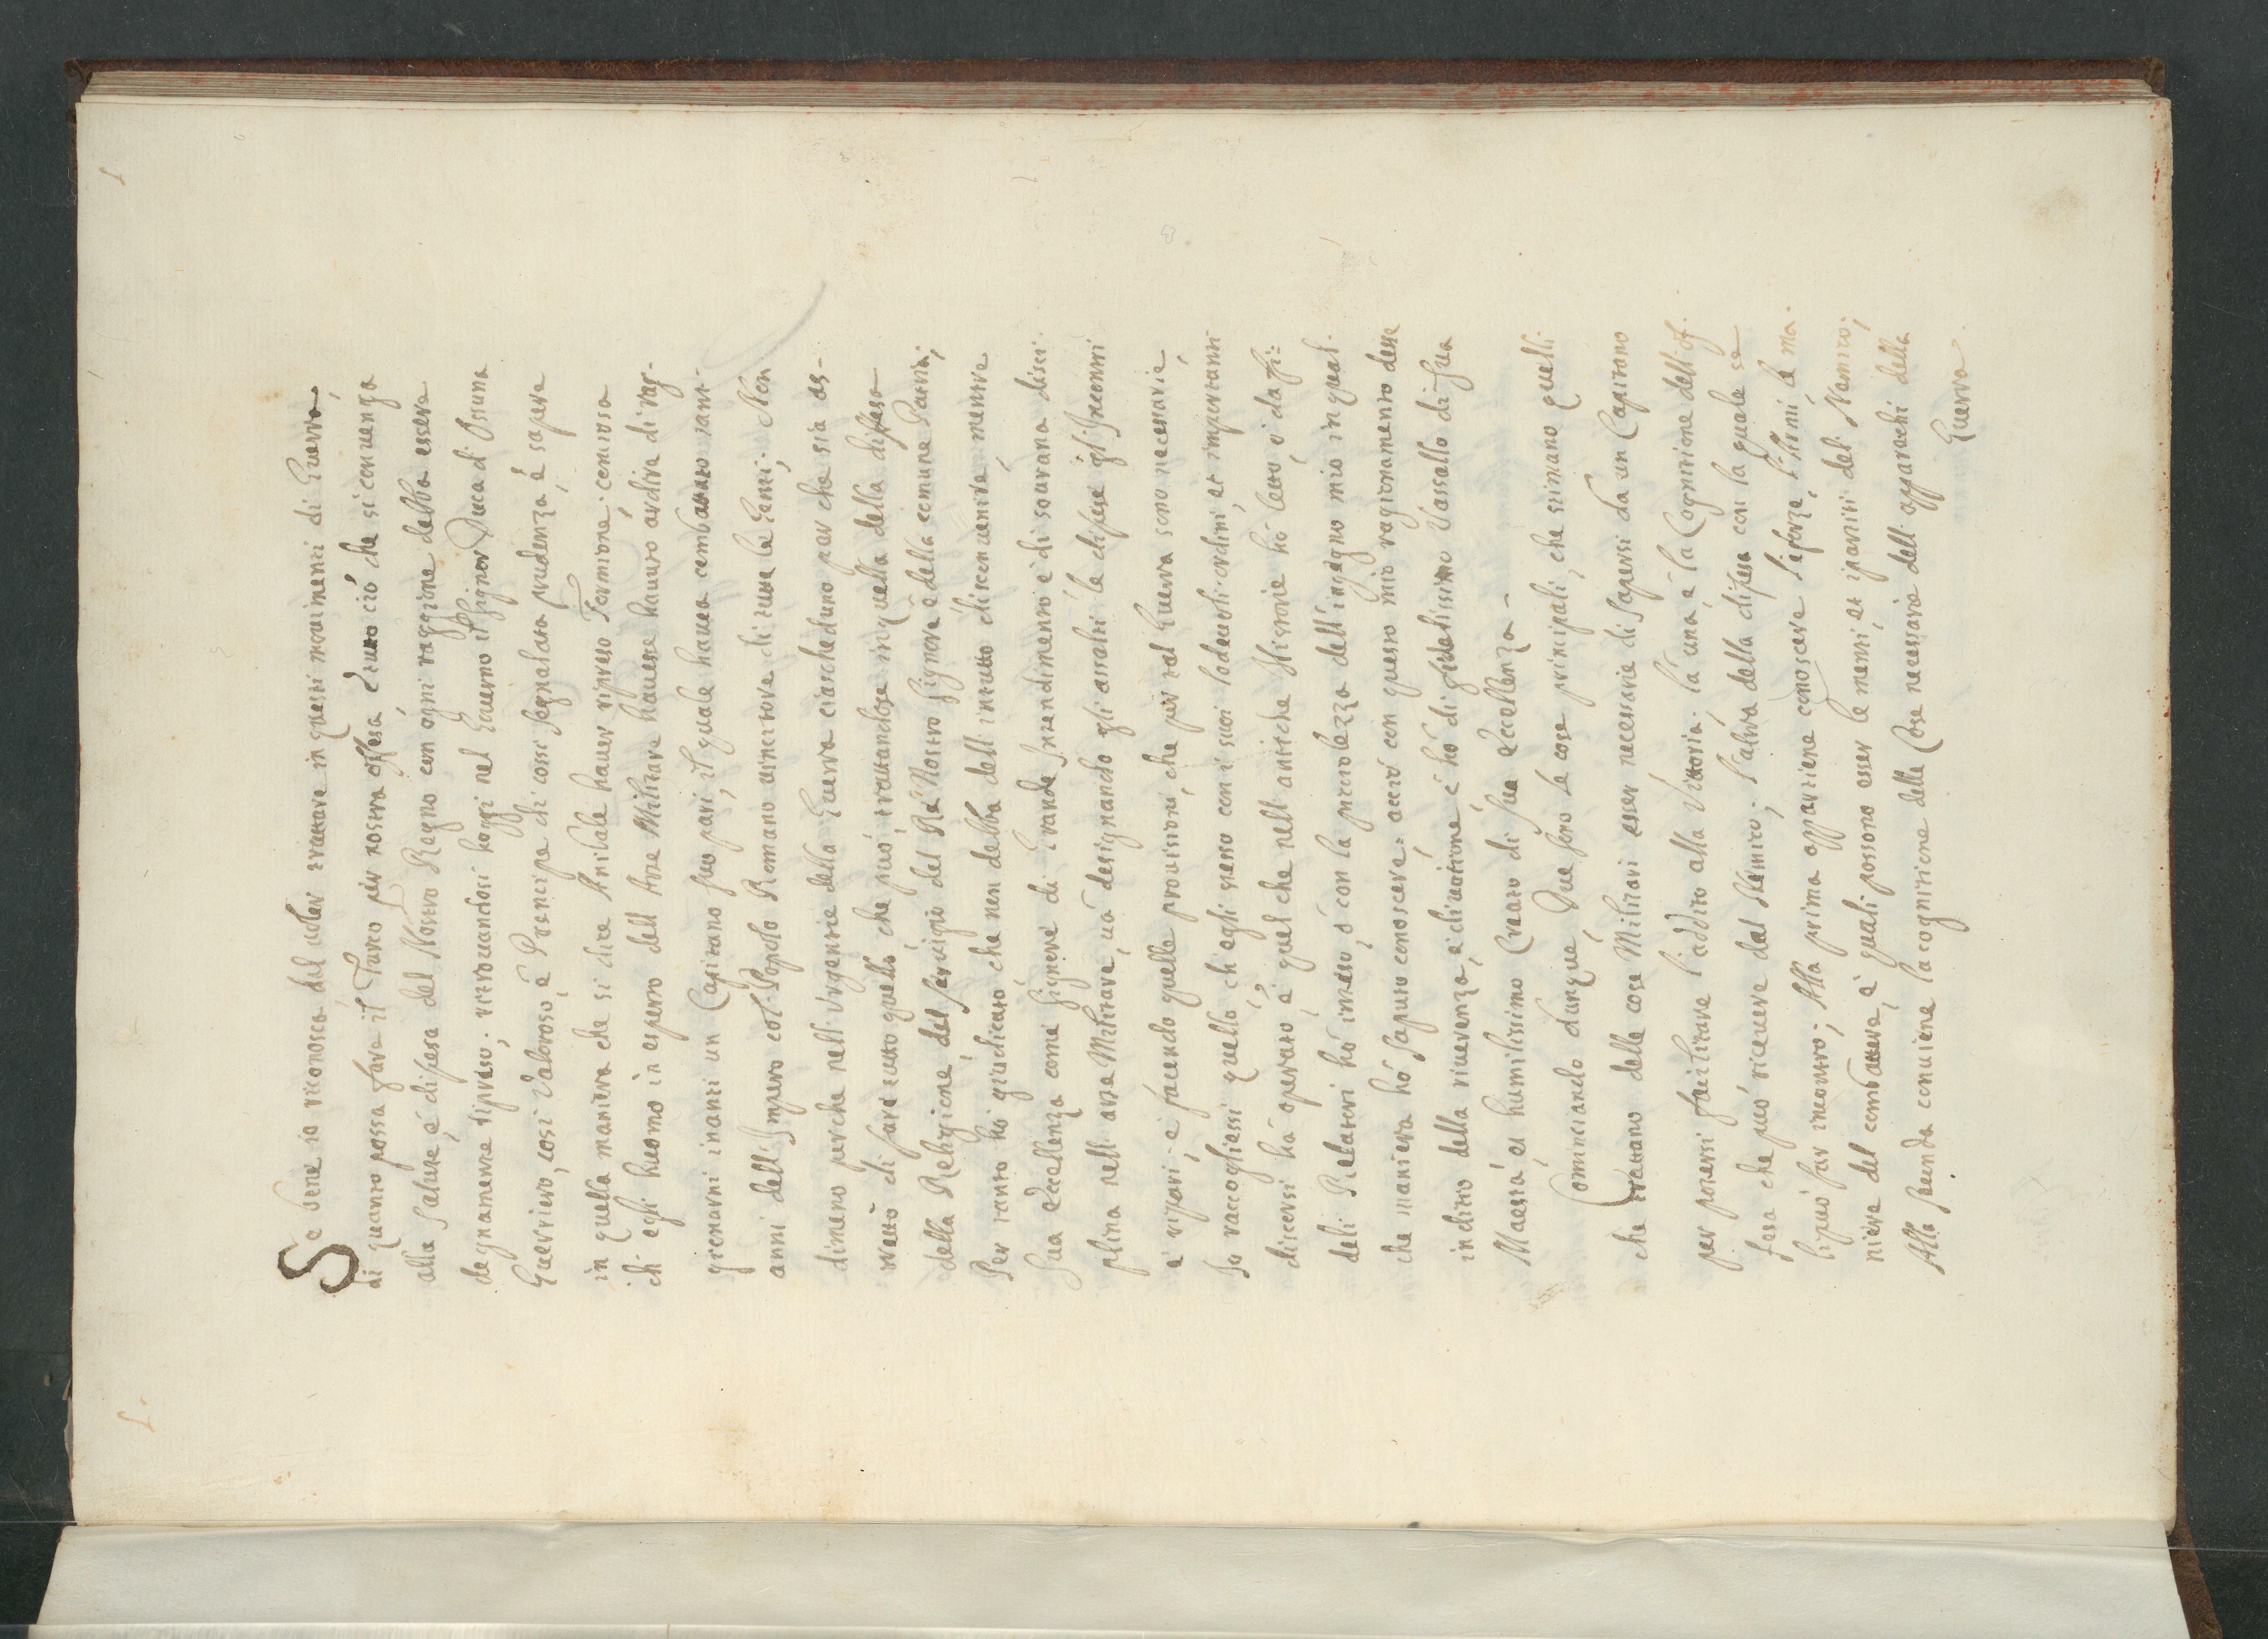 1
1.
Se bene io riconosca dal voler trattare in questi movimenti di Guerra,
di quanto possa fare il Turco per nostra offesa, è tutto ciò che si convenga
alla salute, è difesa del Nostro Regno con ogni raggione debba essere
degnamente ripreso; ritrovandosi hoggi nel Governo il Signor Duca di Ossuna
Guerriero, così valoroso, è Prencipe di così segnalata prudenza, è sapere
in quella maniera che si dice Anibale haver ripreso Formione; come cosa
ch'egli huomo in esperto dell'Arte Militare havesse havuto ardire di rag-
gionarni inanti un Capitano suo pari, il quale havea combattuto tant-
anni dell'Impero col Popolo Romano vincitore di tutte le Genti; Non
dimeno perche nell'Urgentie della Guerra ciascheduno par che sia as-
tretto di fare tutto quello, che può, trattandose in quella della difesa
della Religione, del servigio del Rè Nostro Signore è della comune Patria;
Per tanto hò giudicato, che non debba dell'intutto disconvenire, mentre
Sua Eccellenza come Signore di Grande Intendimento è di sourana disci-
plina nell'arte Militare, và designando gli assalti, le difese gl'Incontri
è ripari, è facendo quelle provisioni, che per tal Guerra sono necessarie,
Io raccogliessi quello, ch'egli stesso con i suoi lodevoli ordini, et importanti
discorsi hà operato, è quel che nell'antiche Historie hò letto, ò da fi-
deli Relatori hò inteso, ò con la picciolezza dell'ingegno mio in qual-
che maniera hò saputo conoscere; acciò con questo mio ragionamento desse
inditio della riverenza, è divotione, c'hò di fidelissimo Vassallo di Sua
Maestà, et humilissimo Creato di Sua Eccellenza
Cominciando dunque, Due sono le cose principali, che stimano quelli
che trattano delle cose Militari esser necessarie di sapersi da un Capitano
per potersi facilitare l'adito alla Vittoria; la una, è la Cognitione dell'of-
fesa che può ricevere dal Nemico; l'altra della difesa con la quale se
li può far incontro; Alla prima appartiene conoscere le forze, l'Armi, le ma-
niere del combattere, è quali possono esser le menti, et i partiti del Nemico;
Alla seconda conviene la cognitione delle Cose necessarie dell'apparachi della
Guerra